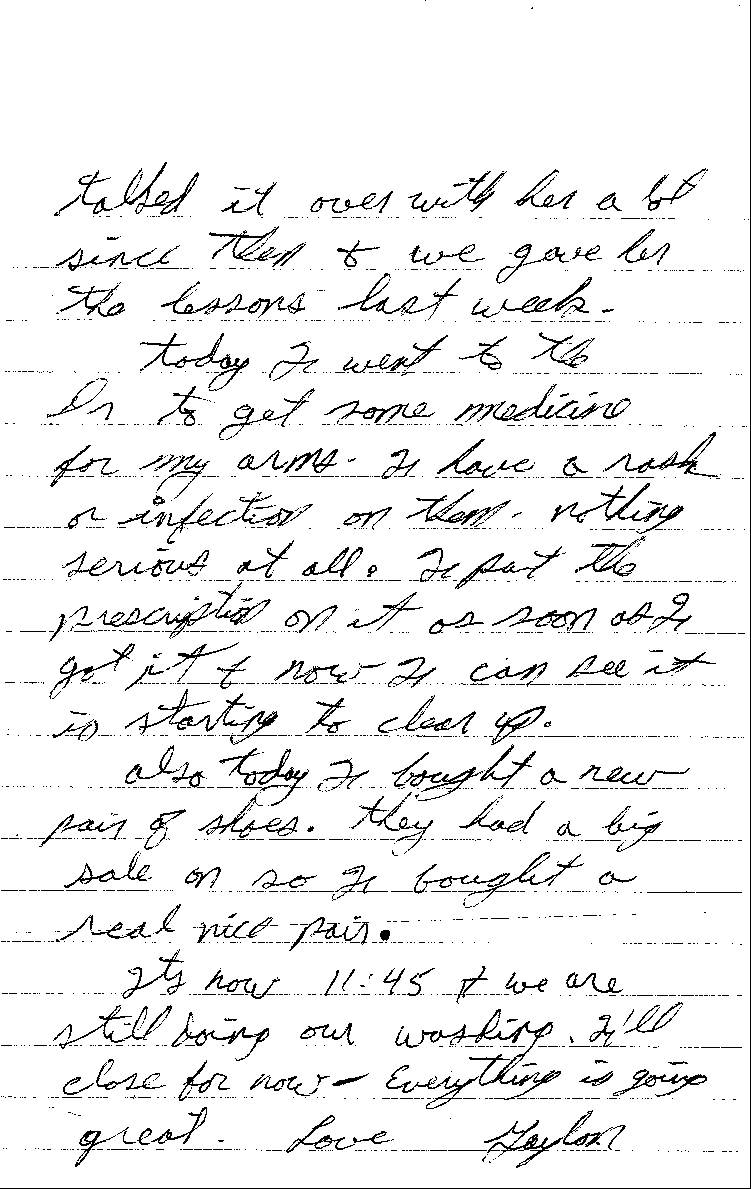 talked it over with her a lot
since then & we gave her
the lessons last week.
today I went to the
Dr to get some medicine
for my arms. I have a rash
or infection on them. nothing
serious at all. I put the
prescription on it as soon as I
got it & now I can see it
is starting to clear up.
also today I bought a new
pair of shoes. they had a big
sale on so I bought a
real nice pair.
Its now 11:45 & we are
still doing our washing. I'll
close for now - Everything is going
great. Love Gaylon